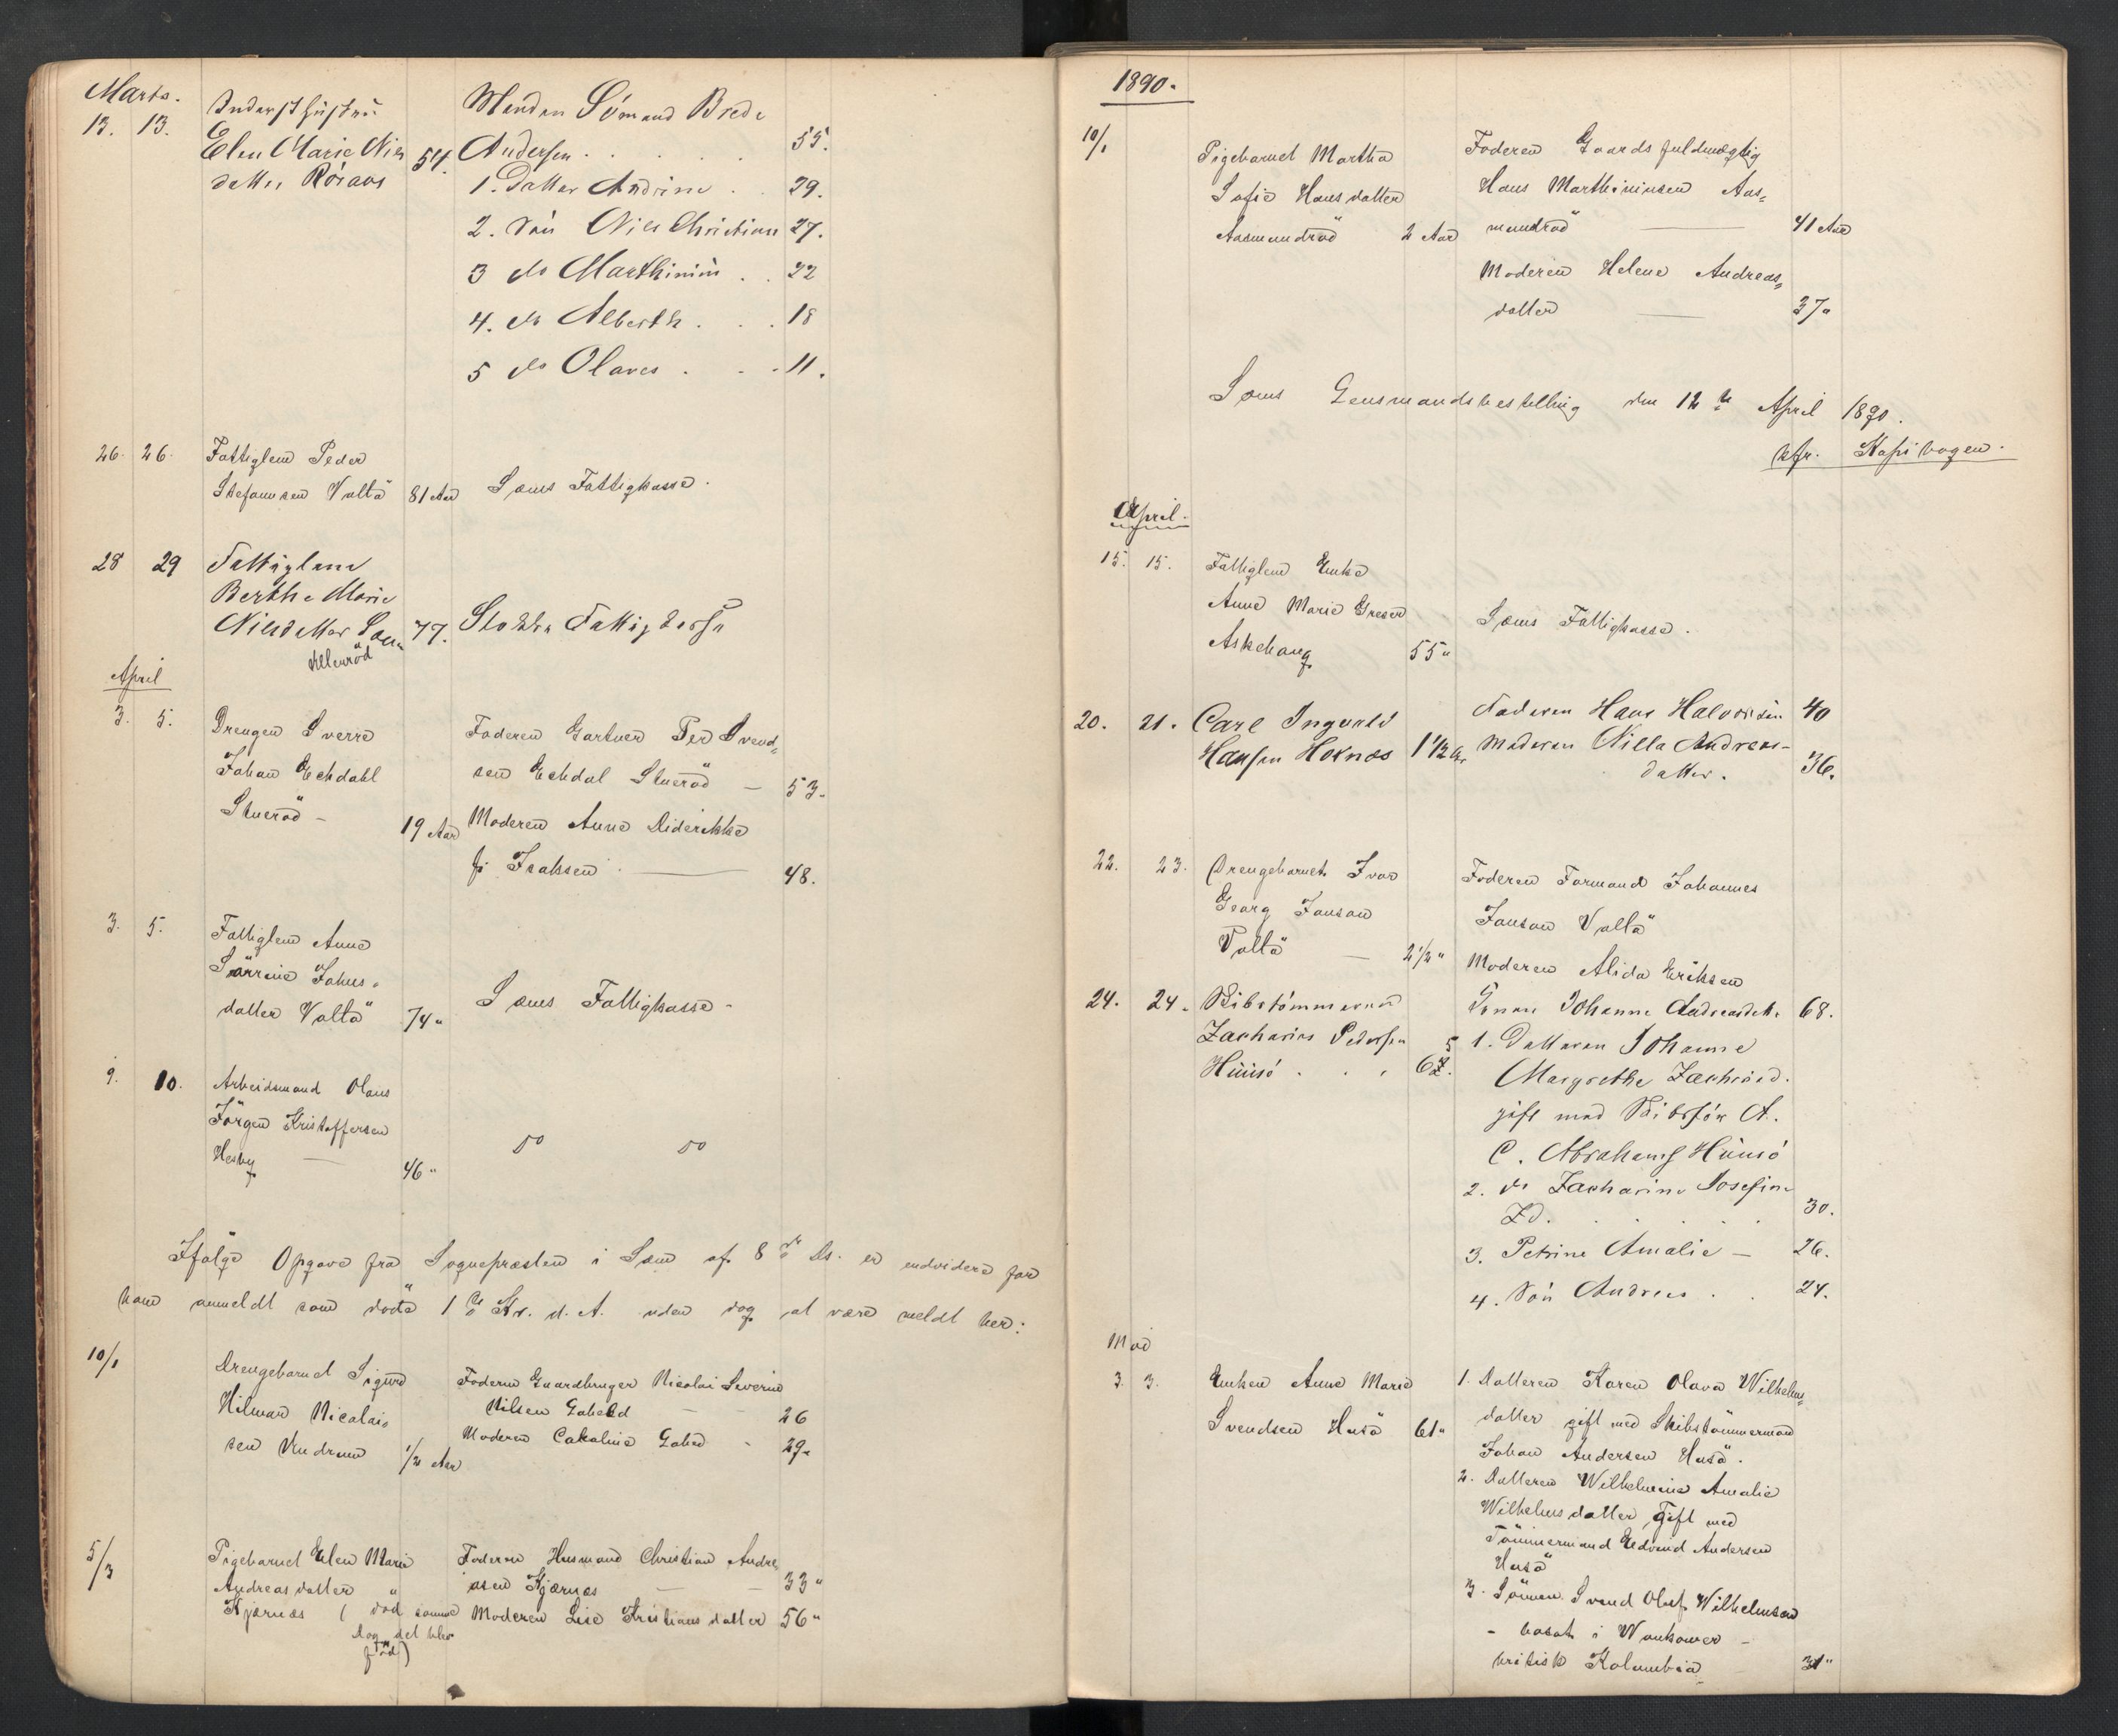 Marts.
13. 13. Inderst hustru
Elen Marie Niels
datter Röraas 54.
Manden Sömand Brede
Andersen . . . . . 55.
1. Datter Andrine . . 29.
2. Sön Niels Christian 27.
3 do Marthinius . . 22
4. do Alberth . . . 18
5 do Olaves . . . 11.
26. 26. Fattiglem Peder
Stefansen Vallö 81 Aar Sems Fattigkasse.
28 29 Fattiglem
Berthe Marie
Nilsdatter Sem 77. Stokke Fattigkasse
Allerød
April
3. 5. Drengen Sverre
Johan Eckdahl
Stueröd - 19 Aar
Faderen Gartner Per Svend=
sen Eckdal Stueröd - 53.
Moderen Anne Diderikke
f. Isaksen . 48.
3. 5. Fattiglem Anne
Sörrine Johns=
datter Vallö 74" Sems Fattigkasse -
9. 10. Arbeidsmand Olaus
Jörgen Kristoffersen
Hesby 46" do do
Ifölge Opgave fra Sognepræsten i Sem af 8de ds. er endvidere for
ham anmeldt som döde 1ste Kv. d. A. uden dog at være meldt her:
10/1 Drengebarnet Sigurd
Hilmar Nicolai=
sen Undrum 1/2 Aar
Faderen Gaardbruger Nicolai Severin
Nilsen Gabeld - - 26
Moderen Cakaline Gabed - 29"
5/3 Pigebarnet Elen Marie
Andreasdatter "
Kjærnæs ( död samme
Dag det blev
född)
Faderen Husmand Christian Andre
asen Kjærnæs 33"
Moderen Lise Kristiansdatter 56"
1890.
10/1 Pigebarnet Martha
Sofie Hansdatter
Aasmundröd 2 Aar
Faderen Gaardsfuldmægtig
Hans Marthininsen Aas=
mundröd 41 Aar
Moderen Helene Andreas=
datter 37"
Sems Lensmandsbestilling den 12te April 1890.
kfr. Kopibogen.
April.
15. 15. Fattiglem Enke
Anne Marie Greser
Askehaug 55" Sems Fattigkasse.
20. 21. Carl Ingvald
Hansen Hernæs 1 1/2 Aar
Faderen Hans Halvorsen 40
Moderen Nilla Andreas-
datter. 36.
22. 23. Drengebarnet Ivar
Georg Jansen
Vallö 2 1/2"
Faderen Formand Johannes
Janson Vallö
Moderen Alida Eriksen
24. 24. Skibstömmermand
Zacharias Pedersen
Husö . . . 65.
Konen Johanne Andreasdatt. 68.
1. Datteren Johanne
Margrethe Zachriasd.
gift med Skibsför A.
C. Abrahams Husö
2. do Zacharine Josefine
Zd. . . . . . 30.
3. Petrine Amalie - 26.
4. Sön Andreas . . 24.
Mai
3. 3. Enken Anne Marie
Svendsen Husö 61"
1. Datteren Karen Olava Wilhelms=
datter gift med Skibstömmermand
Johan Andersen Husö.
2. Datteren Wilhelmine Amalie
Wilhelmsdatter, Gift med
Tömmermand Edvind Andersen
Husö
3. Sönnen Svend Oluf Wilhelmsen
- bosat i Wankower -
britisk Kolumbia - 31"